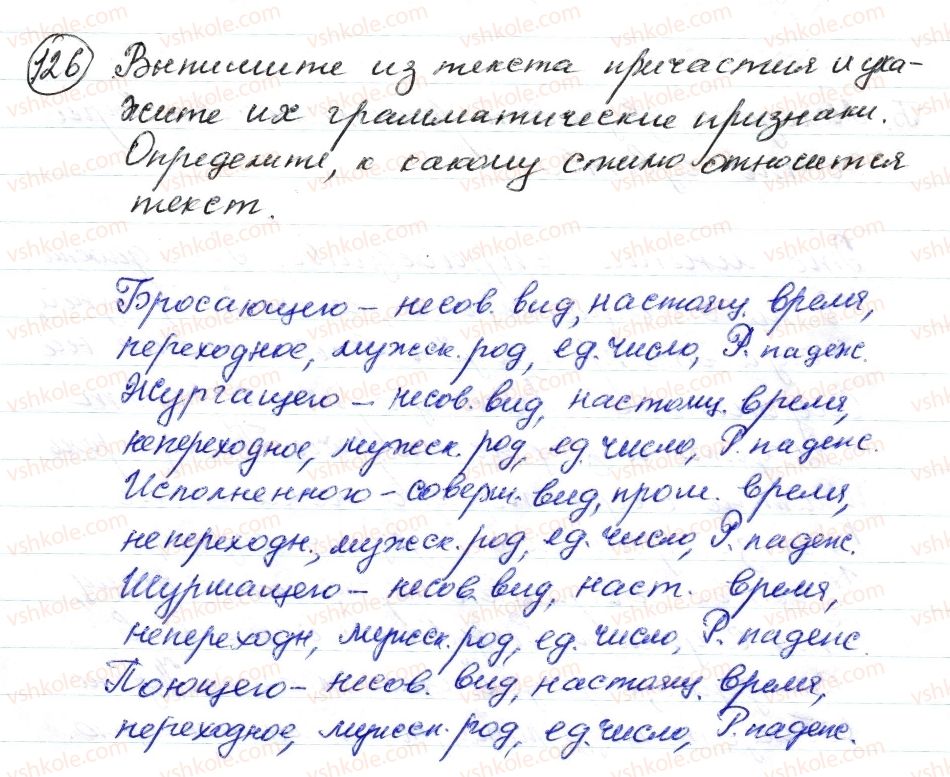 126 Выпишите из текста причастия и ука-
жите их грамматические признаки.
Определите, к какому стилю относится
текст.
Бросающего – несов. вид, настоящ. время,
переходное, мужск. род, ед. число, Р. падеж.
Журчащего – несов. вид, настоящ. время,
непереходное, мужск. род, ед. число, Р. падеж.
Исполненного – соверш. вид, прош. время,
непереходн., мужск. род, ед. число, Р. падеж.
Шуршащего – несов. вид, наст. время,
непереходн, мужск. род, ед. число, Р. падеж.
Поющего – несов. вид, настоящ. время,
переходное, мужск. род, ед. число, Р. падеж.